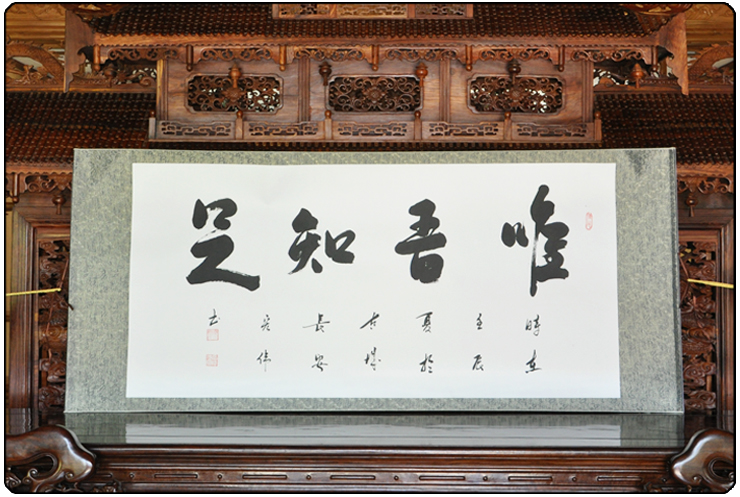 唯吾知足
時在
壬辰
夏於
古城
長安
伟
书